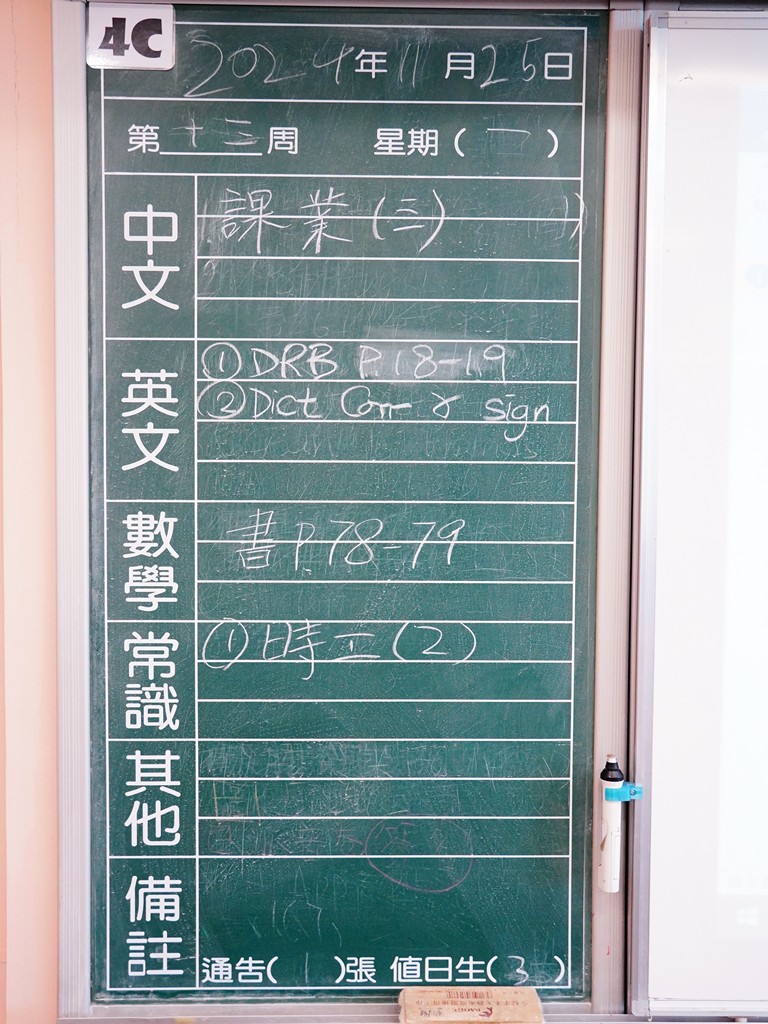 4C
2024年11月25日
第十三周 星期(一)
中文
課業(三)
英文
①DRB P.18-19
②Dict Corr & sign
數學
書P.78-79
常識
①時工(2)
其他
備註
通告(1)張 值日生(3)